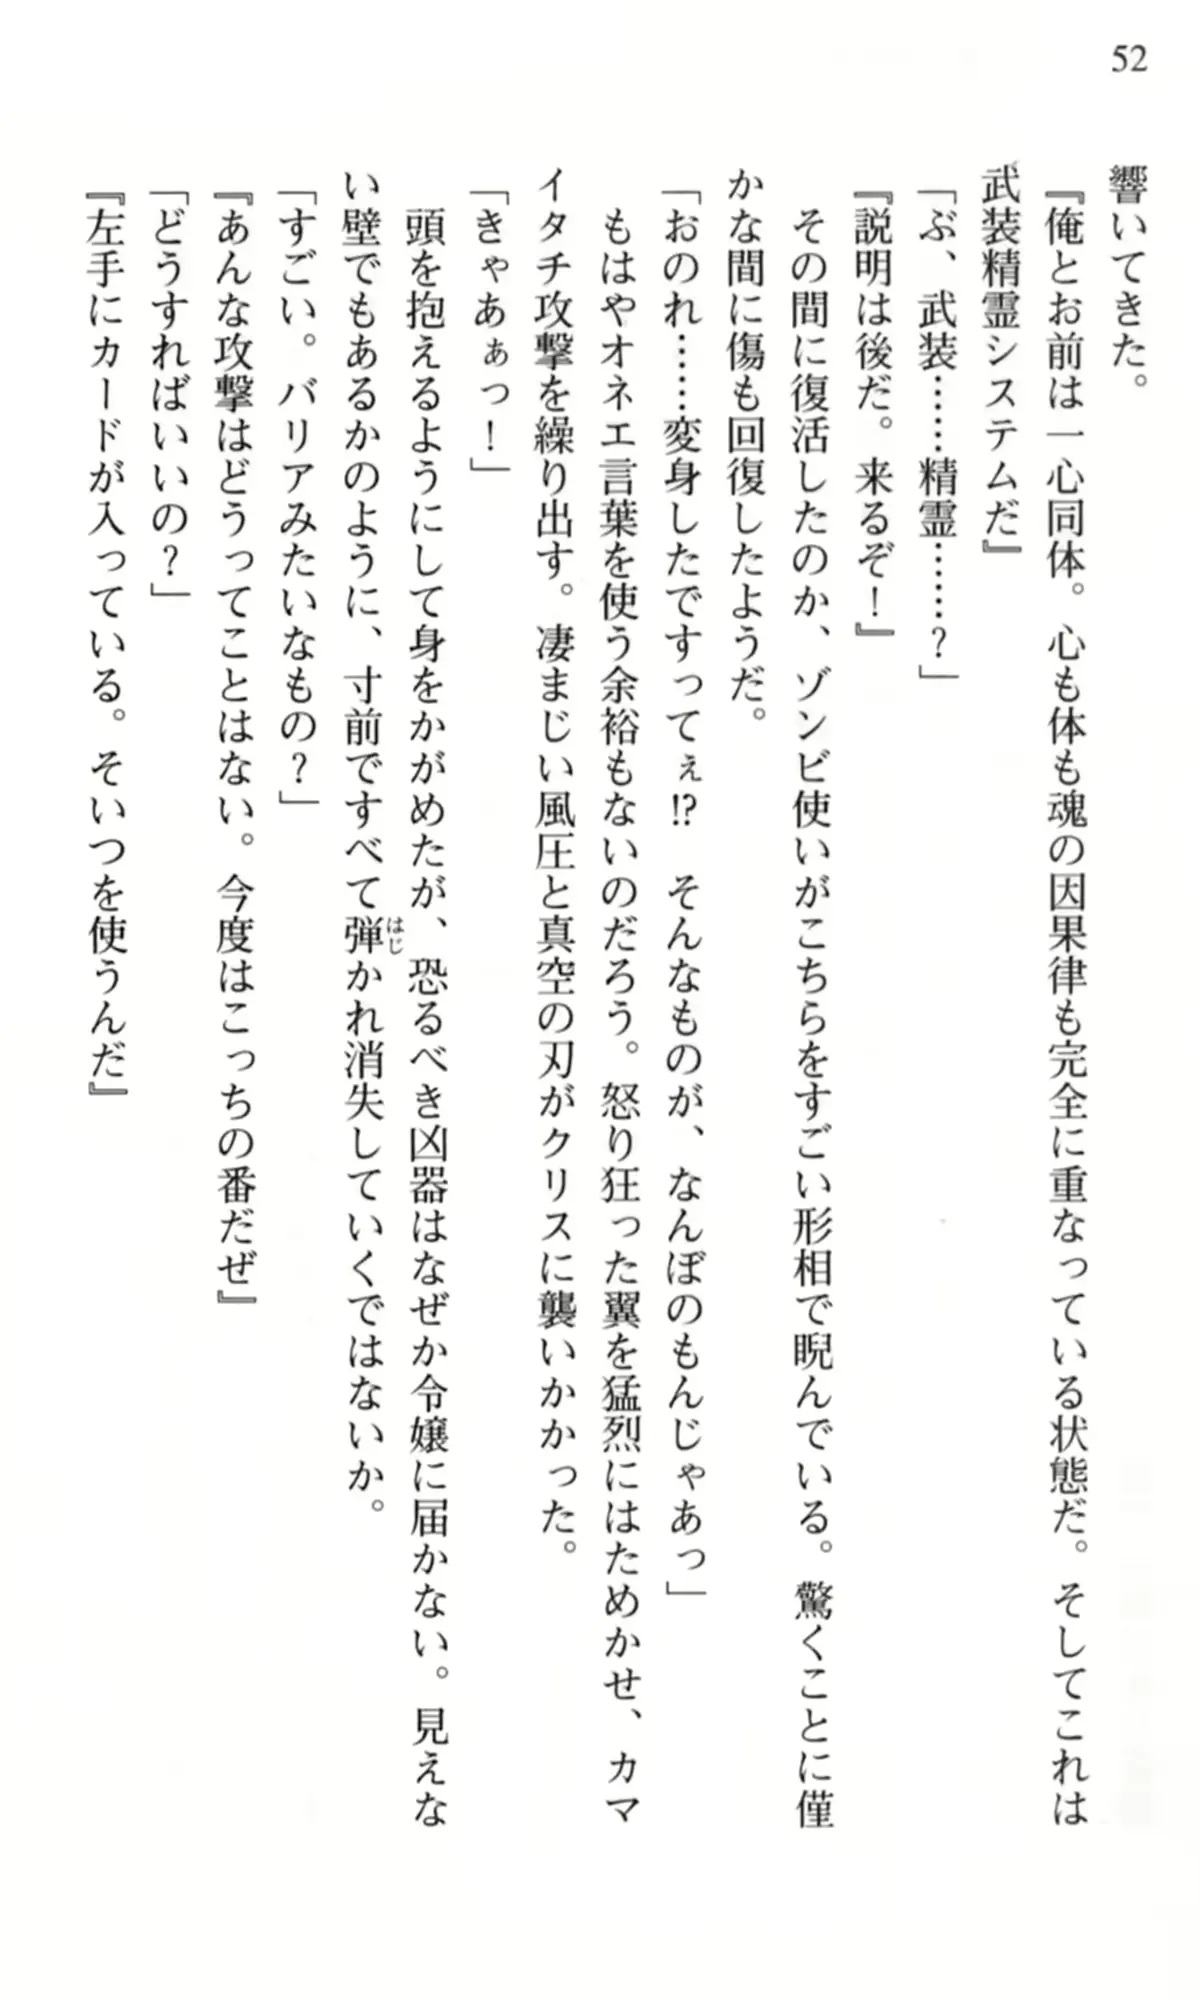 52
響いてきた。
『俺とお前は一心同体。心も体も魂の因果律も完全に重なっている状態だ。そしてこれは
武装精霊システムだ』
「ぶ、武装……精霊……？」
『説明は後だ。来るぞ！』
その間に復活したのか、ゾンビ使いがこちらをすごい形相で睨んでいる。驚くことに僅
かな間に傷も回復したようだ。
「おのれ……変身したですってぇ!?　そんなものが、なんぼのもんじゃあっ」
もはやオネエ言葉を使う余裕もないのだろう。怒り狂った翼を猛烈にはためかせ、カマ
イタチ攻撃を繰り出す。凄まじい風圧と真空の刃がクリスに襲いかかった。
「きゃあぁっ！」
頭を抱えるようにして身をかがめたが、恐るべき凶器はなぜか令嬢に届かない。見えな
い壁でもあるかのように、寸前ですべて弾かれ消失していくではないか。
はじ
「すごい。バリアみたいなもの？」
『あんな攻撃はどうってことはない。今度はこっちの番だぜ』
「どうすればいいの？」
『左手にカードが入っている。そいつを使うんだ』